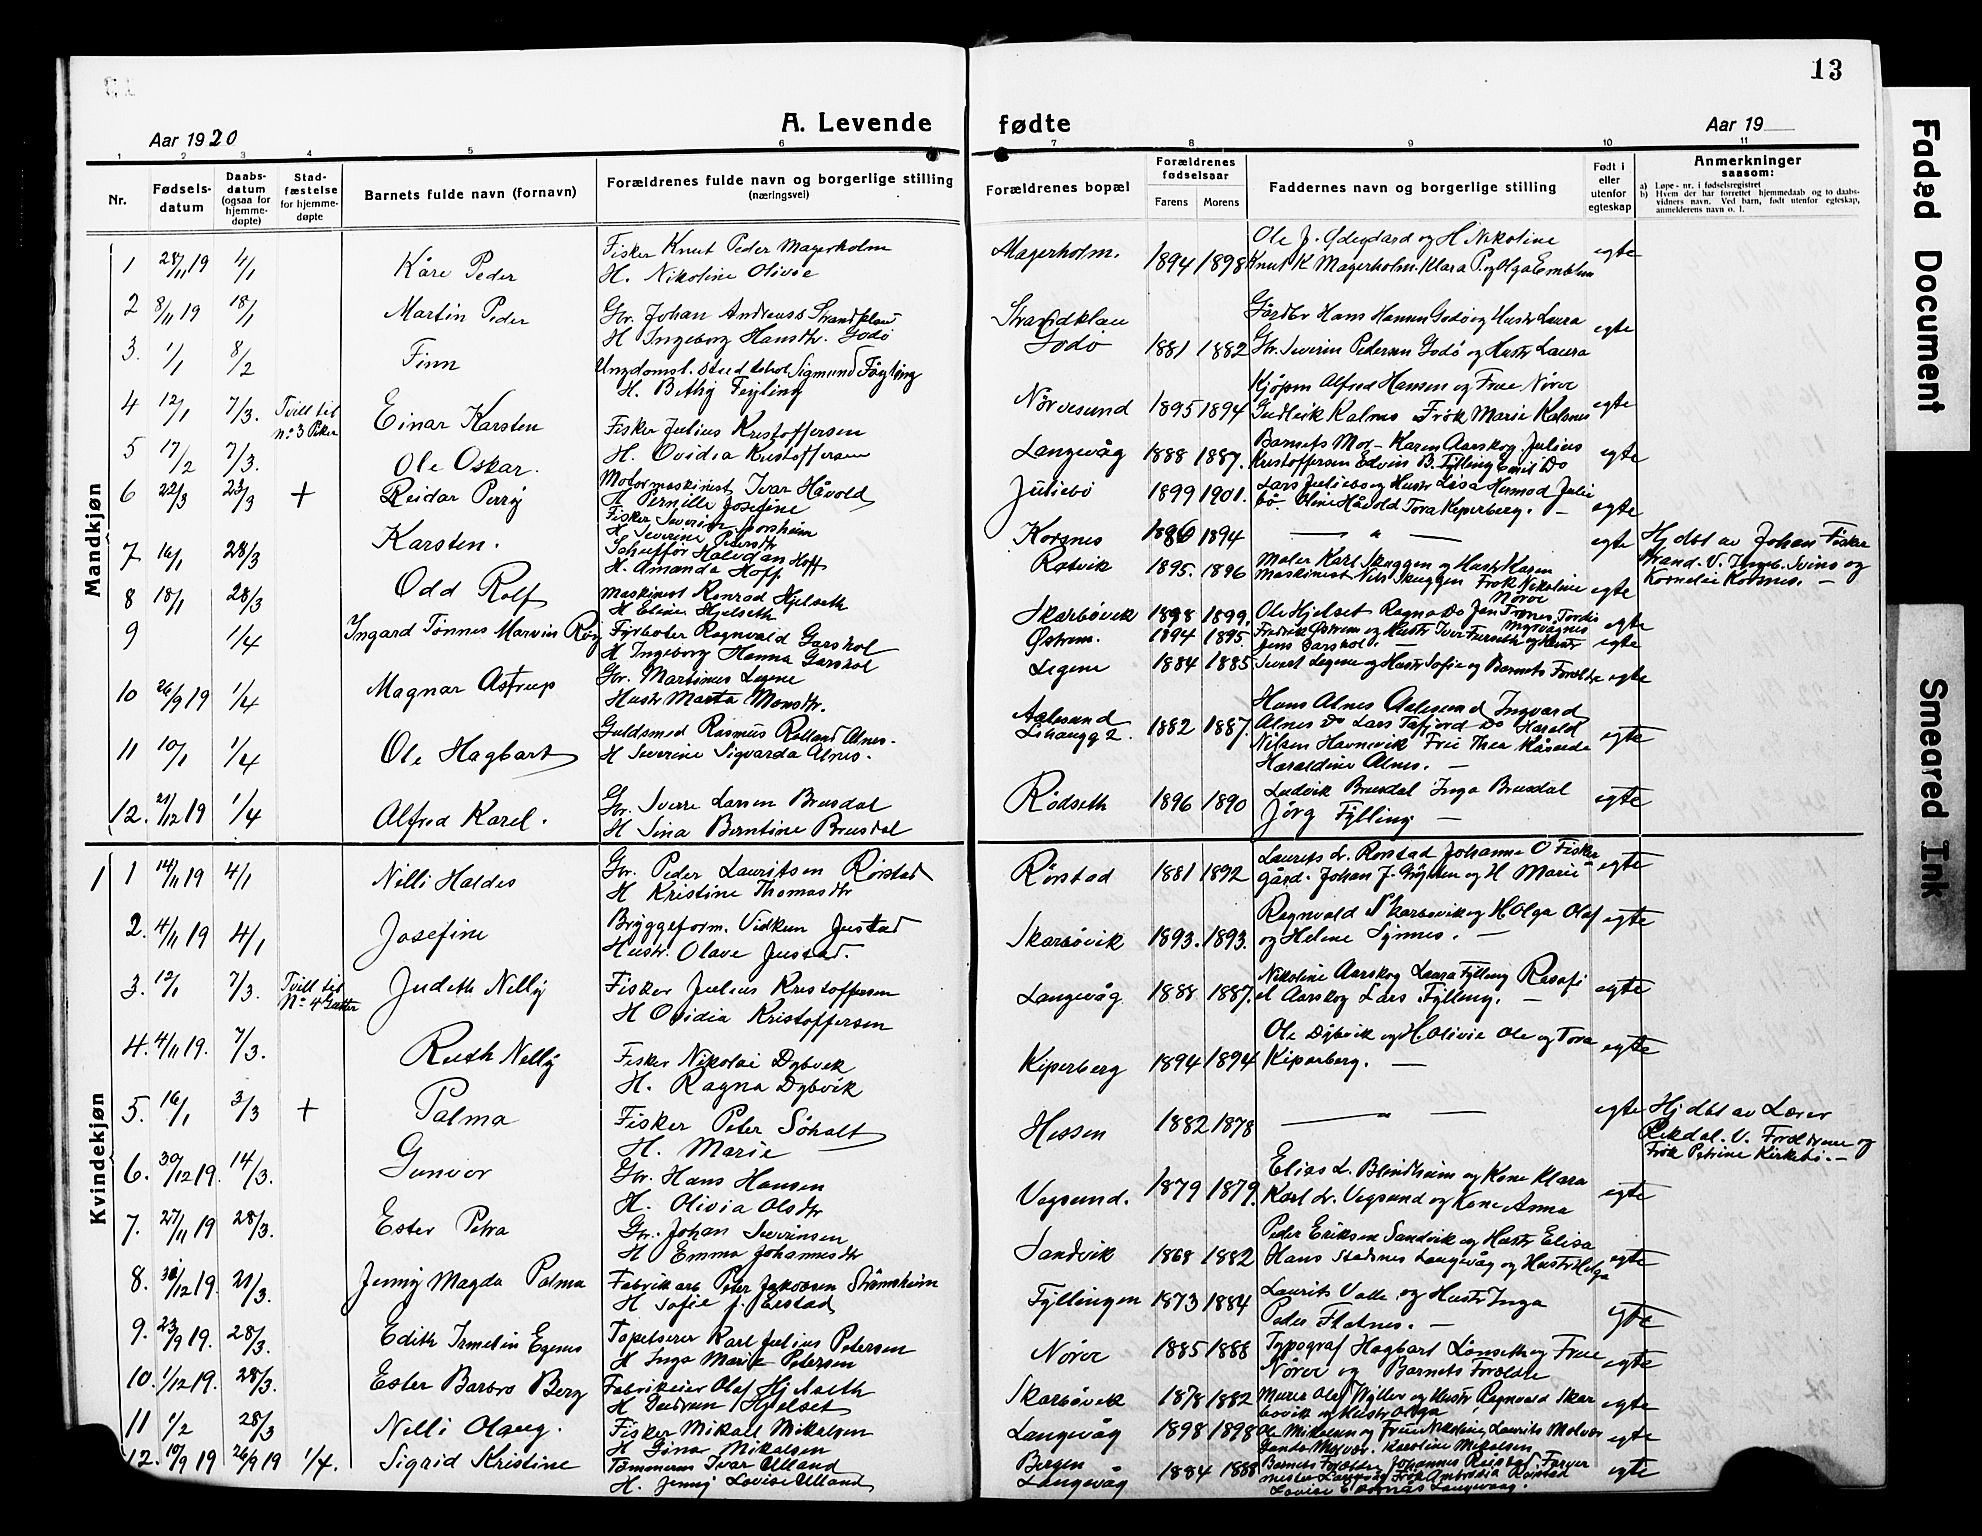 13
A. Levende fødte
Aar 1920
Aar 19
1 2 3 4 5 6 7 8 9 10 11
Nr.
Fødsels-
datum
Daabs-
datum
(ogsaa for
hjemme-
døpte)
Stad-
fæstelse
for hjemme-
døpte
Barnets fulde navn (fornavn)
Forældrenes fulde navn og borgerlige stilling
(næringsvei)
Forældrenes bopæl
Forældrenes
fødselsaar
Farens Morens
Faddernes navn og borgerlige stilling
Født i
eller
utenfor
egteskap
Anmerkninger
saasom:
a) Løpe-nr. i fødselsregistret
b) Hvem der har forrettet hjemmedaab og to daabs-
vidners navn. Ved barn, født utenfor egteskap,
anmelderens navn o. l.
Mandkjøn
1 28/11 19 4/1 Kåre Peder
Fisker Knut Peder Magerholm
H. Nikoline Olivie
Magerholm. 1894 1898
Ole J. Ødegaard og H Nikoline
Knut K Magerholm. Klara P. og Olga Emblem
egte
2 8/11 19 18/1 Martin Peder
Gbr. Johan Andreas S Strandklau
H Ingeborg Hansdtr. Godø
Strandklau
Godö 1881 1882
Gårdbr Hans Hansen Godö og Hustr Laura
Gbr. Severin Pedersen Godö og Hustr Laura
egte
3. 1/1 8/2 Finn
Ungdomsl. Sigmund Fögling
H. Bethy
Nörvesund 1895 1894
Kjöpm Alfred Hansen og Frue Nörve
Kalnes Frök Marie Kalsnes
egte
4 12/1 7/3. Tvill til
No 3 Piker
Einar Karsten
Fisker Julius Kristoffersen
H. Ovidia Kristoffersen
Langevåg 1888 1887.
Barnets Mor - Karen Aarskog Julius
Kristoffersen Edvin B. Fylling Emil Do
egte
5 17/2 7/3. Ole Oskar.
Motormaskinist Ivar Håvold
H Pernille Josefine
Juliebö 1899 1901.
Lars Juliebö og Hustr Lisa Hermod Julie
bö. Oline Håvold Tora Kiperberg. -
egte
6 22/3 23/3 + Reidar Perry
Fisker Severin
H Severine Pedersdtr
Korsnes 1886 1894
— " —
egte Hjdbt av Johan Fisker
strand. V. Ingeb. og
Kornelie Korsnes. -
7 16/1 28/3 Karsten.
Schufför Halvdan Hoff
H. Amanda Hoff
Ratvik 1895. 1896
Maler Karl Skuggen og Hustr Karen
Maskinist Nils Skuggen Frøk Nikoline
Nörve
egte
8 18/1 28/3 Odd Rolf
Maskinist Konrad Hjelseth
H Eline Hjelseth
Skarbövik 1898 1899.
Ole Hjelset Ragna Do Jan Tordis
egte
9 1/4 Ingard Tønnes Marvin Roy
Fyrböter Ragnvald Garshol
H Ingeborg Hanna Garshol
Østrem. 1894 1895.
Fredrik Østrem og Hustr Iver og Hustr
Jens Garshol. -
egte
10 26/9 19 1/4 Magnar Astrup
Gbr. Martinus Legene
Hustr Marta Monsdtr.
Legene 1884 1885
Sivert Legene og Hustr Sofie og Barnets Foreldre
egte
11 10/1 1/4 Ole Hagbart
Guldsmed Rasmus Rolland Alnes.
H Severine Sigvarda Alnes.
Aalesund
1882 1887.
Hans Alnes Aalesund Ingvard
Alnes Do Lars Tafjord Do Harald
Nilsen Havnevik Frue Thea
Haraldine Alnes. -
egte
12. 21/12 19 1/4 Alfred Karel.
Gbr. Sverre Larsen Brusdal
H Sina Berntine Brusdal
Rödseth 1896 1890
Ludvik Brusdal Inga Brusdal
Jörg Fylling -
egte
Kvindekjøn
1 1 14/11 19 4/1 Nelli Haldis
Gbr. Peder Lauritsen Rørstad
H Kristine Thomasdtr
Rørstad 1881 1892
Laurits L. Rørstad Johanne O Fisker
gård. Johan J. og H Marie
egte
2. 4/11 19 4/1 Josefine
Bryggeform. Vidkun Justad
Hustr. Olave Justad.
Skarbövik 1893. 1893.
Ragnvald Skarbövik og H Olga Olaf
og Helene Synnes. -
egte
3. 12/1 7/3. Tvill til
No 4 Gutter
Judith Nelly
Fisker Julius Kristoffersen
H Ovidia Kristoffersen
Langevåg 1888 1887.
Nikoline Aarskog Laura Fylling
Aarskog Lars Fylling. -
egte
4. 4/11 19. 7/3. Ruth Nelly
Fisker Nikolai Dybvik
H. Ragna Dybvik
Kiperberg 1894 1894
Ole Dybvik og H. Olivie Ole og Tora
Kiperberg. -
egte
5. 16/1 3/3 + Palma
Fisker Peter Söholt
H. Marie
Hessen 1882 1878
— " —
egte Hjdbt av Lærer
Rikdal. V. Foreldrene og
Frøk Petrine Kirkebö. -
6. 30/12 19. 14/3. Gunvor
Gbr. Hans Hansen
H. Olivia Olsdtr
Vegsund. 1879 1879.
Elias L. Blindheim og Kone Klara
Karl L. Vegsund og Kone Anna
egte
7. 27/11 19 28/3. Ester Petra
Gbr. Johan Severinsen
H Emma Johannesdtr
Sandvik 1868 1882
Peder Eriksen Sandvik og Hustr Elisa
Hans Stadsnes Langevåg og Hustr Helga
egte
8. 30/12 19. 21/3. Jenny Magda Palma
Fabrikarb Peter Jakobsen Strömsheim
H Sofie J. Eikstad
Fyllingen 1873 1884
Laurits Valle og Hustr Inga
Peder Flatnes. -
egte
9. 23/9 19. 28/3. Edith Irmelin
Tapetserer Karl Julius Petersen
H Inga Marie Petersen
Nörve 1885 1888
Typograf Hagbart Lönseth og Frue
Nörve og Barnets Foreldre
egte
10. 1/12 19. 28/3. Ester Barbro Berg
Fabrikeier Olaf Hjelseth
H Gudrun Hjelset
Skarbövik 1878 1882
Murer Ole Myller og Hustr Ragnvald Skar
bövik og Hustr Olga
egte
11 1/2 28/3 Nelli Olaug.
Fisker Mikael Mikalsen
H Gina Mikalsen
Langevåg 1898 1898
Ole Mikalsen og Frue Nikoline Laurits Molvær
Molvær. Karoline Mikalsen
egte
12. 10/9 19 26/9 19 1/4. Sigrid Kristine
Tømmerm Ivar Ulland
H. Jenny Lovise Ulland
Bergen
Langevåg 1884 1888
Barnets Foreldre Johannes Farver
mester Langevåg Frøk Ambrosia Rørstad
Lovise Langevaag.
egte
Faded Document
Smeared Ink